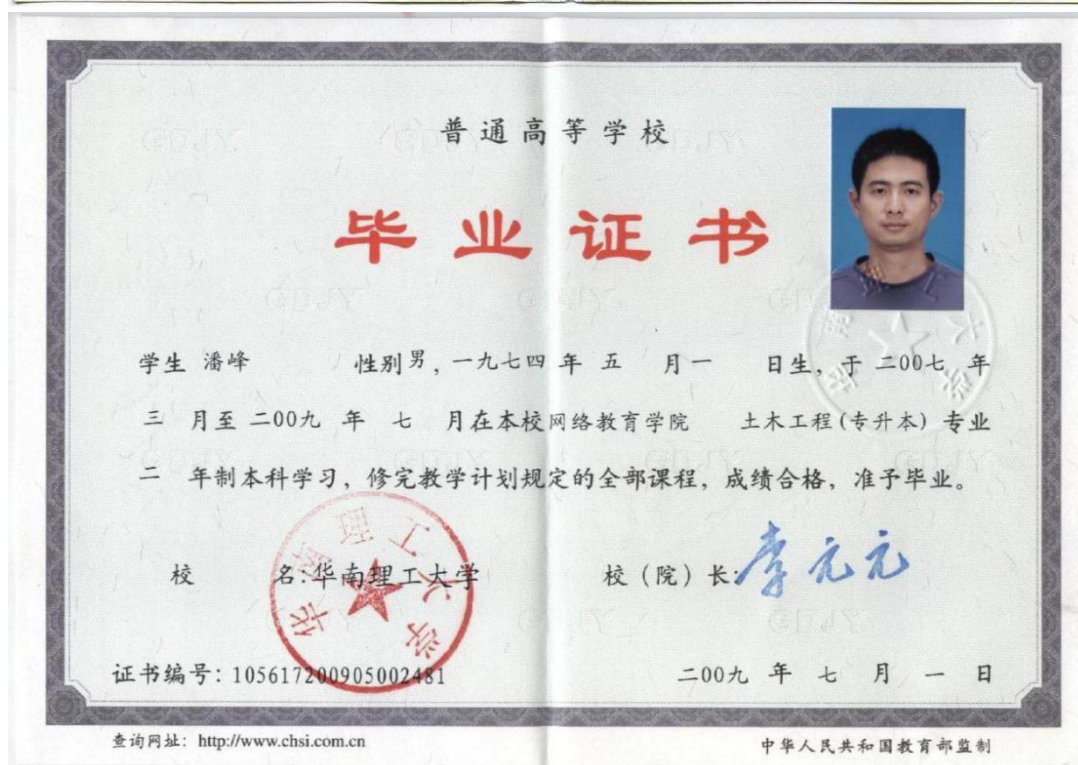 普通高等学校
毕业证书
学生 潘峰 性别 男，一九七四 年 五 月 一 日生，于 二00七 年
三 月至 二00九 年 七 月在本校 网络教育学院 土木工程(专升本) 专业
二 年制本科学习，修完教学计划规定的全部课程，成绩合格，准予毕业。
校 名：华南理工大学 校（院）长：李元元
华南理工大学
证书编号：105617200905002481 二00九 年 七 月 一 日
查询网址：http://www.chsi.com.cn 中华人民共和国教育部监制